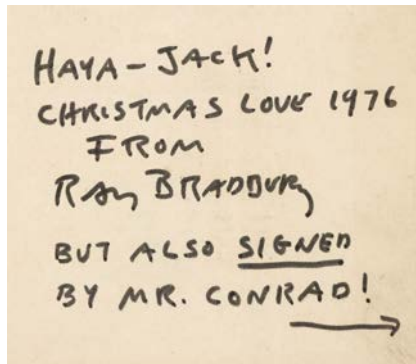 HAYA-JACK!
CHRISTMAS LOVE 1976
FROM
RAY BRADBURY
BUT ALSO SIGNED
BY MR. CONRAD!